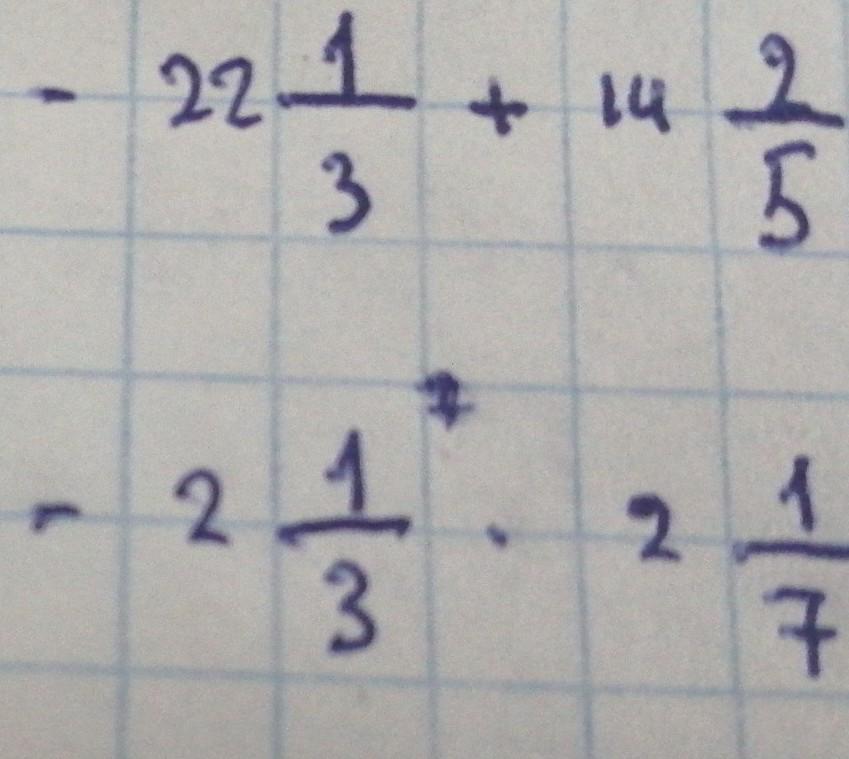 - 22 1/3 + 14 2/5
- 2 1/3 · 2 1/7